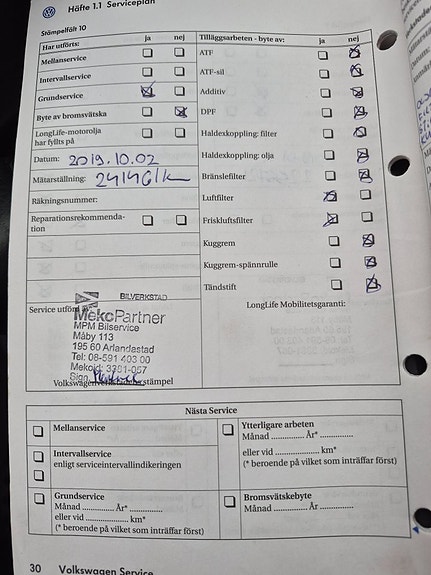 Häfte 1.1 Serviceplan
Stämpelfält 10
Har utförts: ja nej
Mellanservice
Intervallservice
Grundservice
Byte av bromsvätska
LongLife-motorolja
har fyllts på
Datum: 2019.10.02
Mätarställning:
Räkningsnummer:
Reparationsrekommenda-
tion
Service utförd
BILVERKSTAD
MekoPartner
MPM Bilservice
Måby 113
195 60 Arlandastad
Tel: 08-591 403 00
Mekoid: 3391-057
Sign.
Volkswagenverkstadens stämpel
Tilläggsarbeten - byte av: ja nej
ATF
ATF-sil
Additiv
DPF
Haldexkoppling: filter
Haldexkoppling: olja
Bränslefilter
Luftfilter
Friskluftsfilter
Kuggrem
Kuggrem-spännrulle
Tändstift
LongLife Mobilitetsgaranti:
Nästa Service
Mellanservice
Intervallservice
enligt serviceintervallindikeringen
Grundservice
Månad .............. År*..............
eller vid .................... km*
(* beroende på vilket som inträffar först)
Ytterligare arbeten
Månad .............. År* ..............
eller vid .................... km*
(* beroende på vilket som inträffar först)
Bromsvätskebyte
Månad .............. År ..............
30 Volkswagen Service